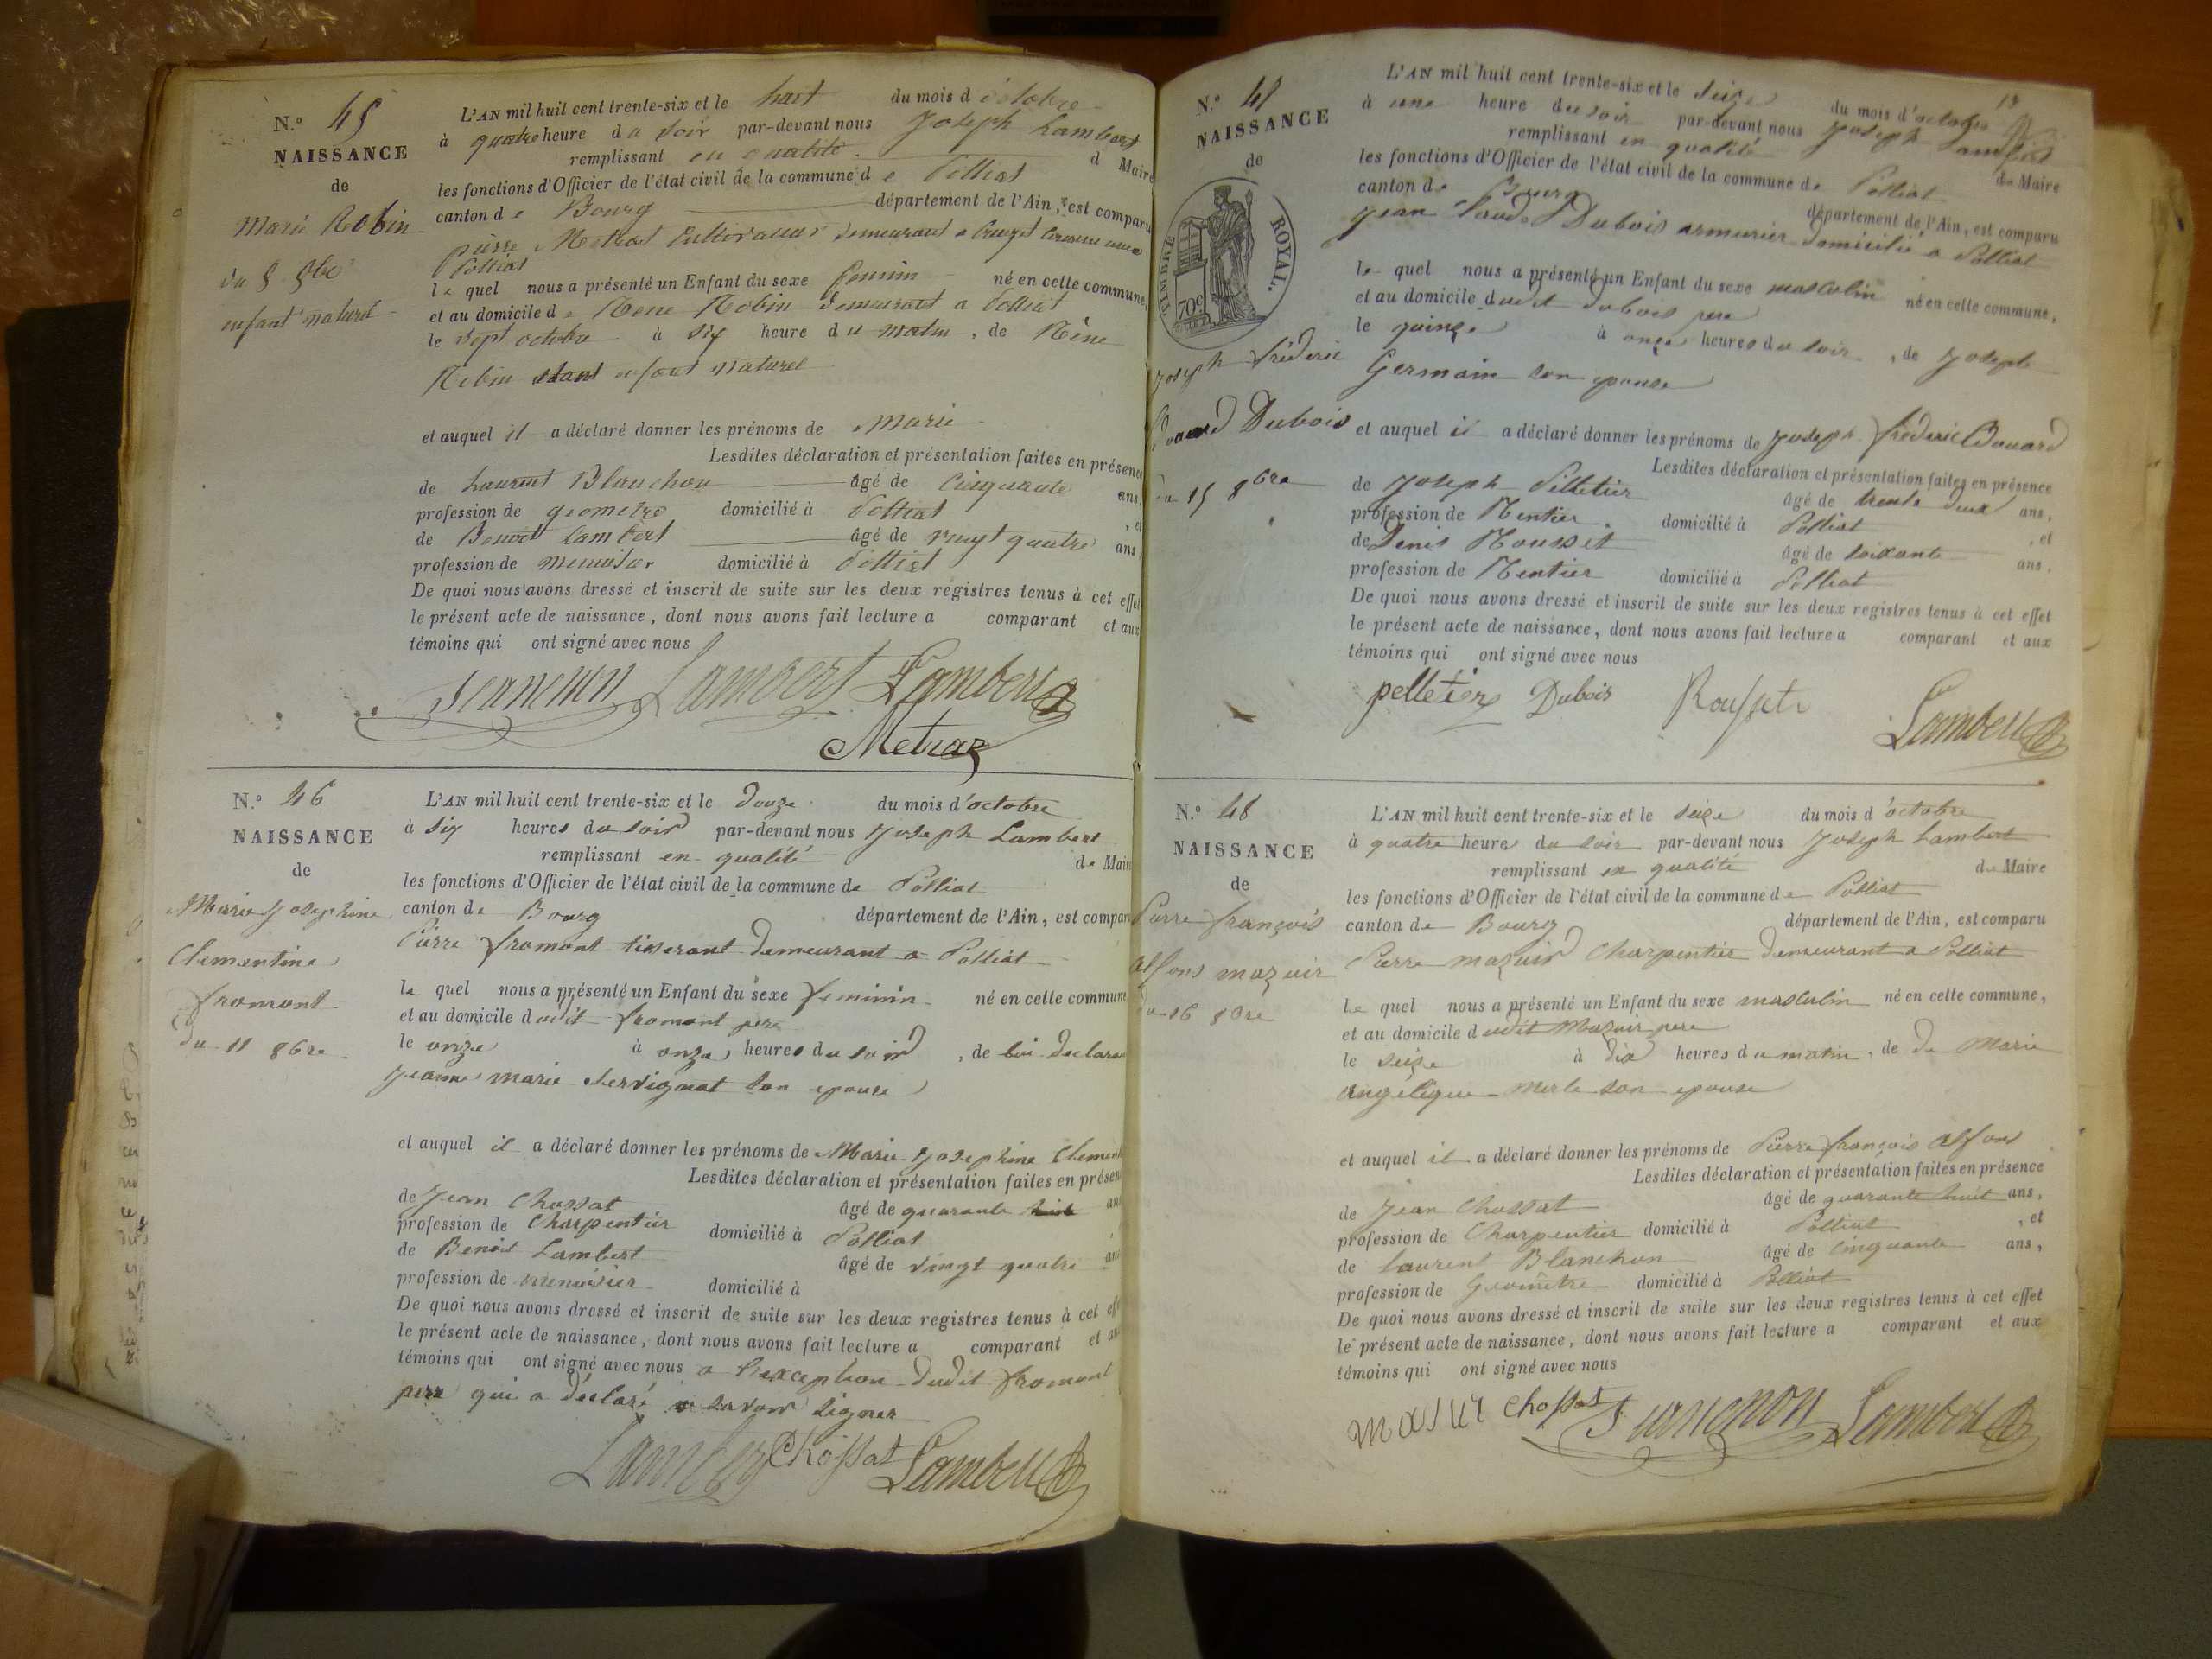 N.° 45
NAISSANCE
de
Marie Robin
du 8 8bre
enfant naturel
L'AN mil huit cent trente-six et le huit du mois d'octobre
à quatre heure du soir par-devant nous Joseph Lambert
remplissant en qualité d Maire
les fonctions d'Officier de l'état civil de la commune de Polliat
canton de Bourg département de l'Ain, est comparu
pierre Metrat Cultivateur demeurant a commune
Polliat
le quel nous a présenté un Enfant du sexe feminin né en cette commune,
et au domicile de Rene Robin demeurant a Polliat
le sept octobre à six heure du matin, de Rène
Robin etant enfant naturel
et auquel il a déclaré donner les prénoms de Marie
Lesdites déclaration et présentation faites en présence
de Laurent Blanchon âgé de Cinquante ans,
profession de geometre domicilié à Polliat , et
de Benoit Lambert âgé de vingt quatre ans
profession de menuisier domicilié à Polliat
De quoi nous avons dressé et inscrit de suite sur les deux registres tenus à cet effet
le présent acte de naissance, dont nous avons fait lecture a comparant et aux
témoins qui ont signé avec nous
Lambert Lambert
Metraz
N.° 46
NAISSANCE
de
Marie Josephine
Clementine
fromont
du 11 8bre
L'AN mil huit cent trente-six et le douze du mois d'octobre
à six heures du soir par-devant nous Joseph Lambert
remplissant en qualité de Maire
les fonctions d'Officier de l'état civil de la commune de Polliat
canton de Bourg département de l'Ain, est comparu
Pierre fromont tisserant demeurant a Polliat
le quel nous a présenté un Enfant du sexe feminin né en cette commune
et au domicile dudit fromont pere
le onze à onze heures du soir, de lui declarant
Jeanne marie chervignat son epouse
et auquel il a déclaré donner les prénoms de Marie Josephine Clement
Lesdites déclaration et présentation faites en présen
de Jean Chossat âgé de quarante huit ans
profession de Charpentier domicilié à Polliat
de Benoit Lambert âgé de vingt quatre ans
profession de menuisier domicilié à
De quoi nous avons dressé et inscrit de suite sur les deux registres tenus à cet eff
le présent acte de naissance, dont nous avons fait lecture a comparant et au
témoins qui ont signé avec nous a l'exception dudit fromont
pere qui a déclaré savoir signer
Lambert Chossat Lambert
13
N.° 47
NAISSANCE
de
TIMBRE ROYAL.
70c
Joseph fréderic
Edouard Dubois
du 15 8bre
L'AN mil huit cent trente-six et le seize du mois d'octobre
à une heure du soir par-devant nous Joseph Lambert
remplissant en qualité de Maire
les fonctions d'Officier de l'état civil de la commune de Polliat
canton de Bourg département de l'Ain, est comparu
Jean Claude Dubois armurier domicilié a Polliat
le quel nous a présenté un Enfant du sexe masculin né en cette commune,
et au domicile dudit dubois pere
le quinze à onze heures du soir, de Joseph
Germain son epouse
et auquel il a déclaré donner les prénoms de Joseph fréderic Edouard
Lesdites déclaration et présentation faites en présence
de Joseph Pelletier âgé de trente deux ans,
profession de Rentier domicilié à Polliat , et
de Denis Rousset âgé de soixante ans,
profession de Rentier domicilié à Polliat
De quoi nous avons dressé et inscrit de suite sur les deux registres tenus à cet effet
le présent acte de naissance, dont nous avons fait lecture a comparant et aux
témoins qui ont signé avec nous
pelletier Dubois Rousset Lambert
N.° 48
NAISSANCE
de
Pierre françois
alfons mazuir
du 16 8bre
L'AN mil huit cent trente-six et le seize du mois d'octobre
à quatre heures du soir par-devant nous Joseph Lambert
remplissant en qualité de Maire
les fonctions d'Officier de l'état civil de la commune de Polliat
canton de Bourg département de l'Ain, est comparu
Pierre mazuir Charpentier demeurant a Polliat
le quel nous a présenté un Enfant du sexe masculin né en cette commune,
et au domicile dudit Mazuir pere
le seize à dix heures du matin, de de Marie
angélique merle son epouse
et auquel il a déclaré donner les prénoms de Pierre françois alfons
Lesdites déclaration et présentation faites en présence
de Jean Chossat âgé de quarante huit ans,
profession de Charpentier domicilié à Polliat , et
de laurent Blanchon âgé de Cinquante ans,
profession de Geométre domicilié à Polliat
De quoi nous avons dressé et inscrit de suite sur les deux registres tenus à cet effet
le présent acte de naissance, dont nous avons fait lecture a comparant et aux
témoins qui ont signé avec nous
masuir chossat Lambert